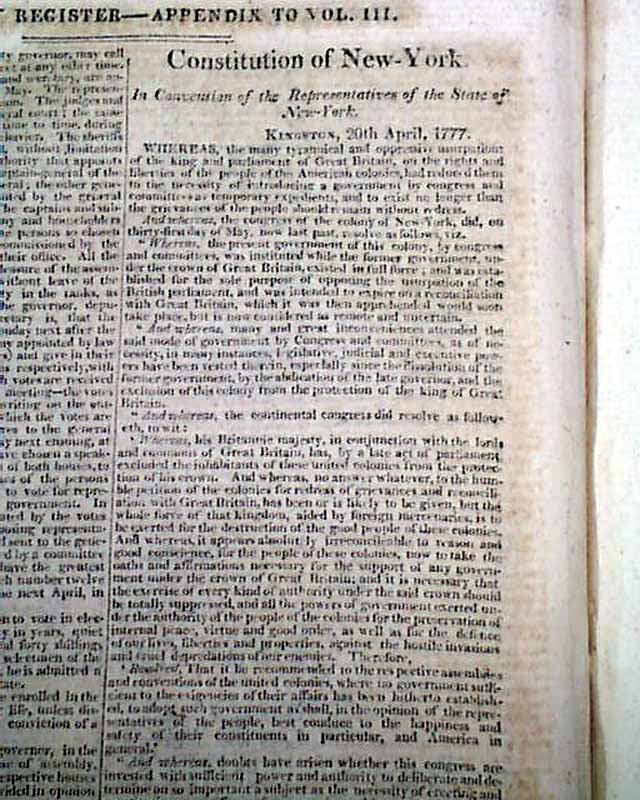 REGISTER—APPENDIX TO VOL. III.
governor, may call
at any other time,
and secretary, are an-
May. The represen-
The judges and
court; the same
time to time, during
behavior. The sheriffs
without limitation
that appoints
captain-general of the
the other gene-
by the general
captains and sub-
and householders
persons so chosen
commissioned by the
their office. All the
pleasure of the assem-
without leave of the
in the ranks, as
the governor, depu-
is, that the
next after the
appointed by law
and give in their
respectively, with
votes are received
meeting—the votes
writing on the out-
which the votes are
to the general
next ensuing, at
chosen a speak-
of both houses, to
of the persons
to vote for repre-
government. In
by the votes
representa-
sent to the gene-
by a committee
have the greatest
number twelve
next April, in
to vote in elec-
in years, quiet
forty shillings
selectmen of the
he is admitted a
enrolled in the
life, unless dis-
conviction of a
governor, in the
of assembly.
respective houses
divided in opinion
Constitution of New-York.
In Convention of the Representatives of the State of
New-York.
KINGSTON, 20th April, 1777.
WHEREAS, the many tyrannical and oppressive usurpations
of the king and parliament of Great Britain, on the rights and
liberties of the people of the American colonies, had reduced them
to the necessity of introducing a government by congress and
committees as temporary expedients, and to exist no longer than
the grievances of the people should remain without redress.
And whereas, the congress of the colony of New-York, did, on
thirty-first day of May, now last past, resolve as follows, viz.
"Whereas, the present government of this colony, by congress
and committees, was instituted while the former government, un-
der the crown of Great Britain, existed in full force; and was esta-
blished for the sole purpose of opposing the usurpation of the
British parliament, and was intended to expire on a reconciliation
with Great Britain, which it was then apprehended would soon
take place, but is now considered as remote and uncertain.
"And whereas, many and great inconveniences attended the
said mode of government by Congress and committees, as of ne-
cessity, in many instances, legislative, judicial and executive pow-
ers have been vested therein, especially since the dissolution of the
former government, by the abdication of the late governor, and the
exclusion of this colony from the protection of the king of Great
Britain.
"And whereas, the continental congress did resolve as follow-
eth, to wit:
'Whereas, his Britannic majesty, in conjunction with the lords
and commons of Great Britain, has, by a late act of parliament,
excluded the inhabitants of these united colonies from the protec-
tion of his crown. And whereas, no answer whatever, to the hum-
ble petition of the colonies for redress of grievances and reconcili-
ation with Great Britain, has been or is likely to be given, but the
whole force of that kingdom, aided by foreign mercenaries, is to
be exerted for the destruction of the good people of these colonies.
And whereas, it appears absolutely irreconcileable to reason and
good conscience, for the people of these colonies, now to take the
oaths and affirmations necessary for the support of any govern-
ment under the crown of Great Britain; and it is necessary that
the exercise of every kind of authority under the said crown should
be totally suppressed, and all the powers of government exerted un-
der the authority of the people of the colonies for the preservation of
internal peace, virtue and good order, as well as for the defence
of our lives, liberties and properties, against the hostile invasions
and cruel depredations of our enemies. Therefore,
'Resolved, That it be recommended to the respective assemblies
and conventions of the united colonies, where no government suffi-
cient to the exigencies of their affairs has been hitherto establish-
ed, to adopt such government as shall, in the opinion of the repre-
sentatives of the people, best conduce to the happiness and
safety of their constituents in particular, and America in
general.'
"And whereas, doubts have arisen whether this congress are
invested with sufficient power and authority to deliberate and de-
termine on so important a subject as the necessity of erecting and